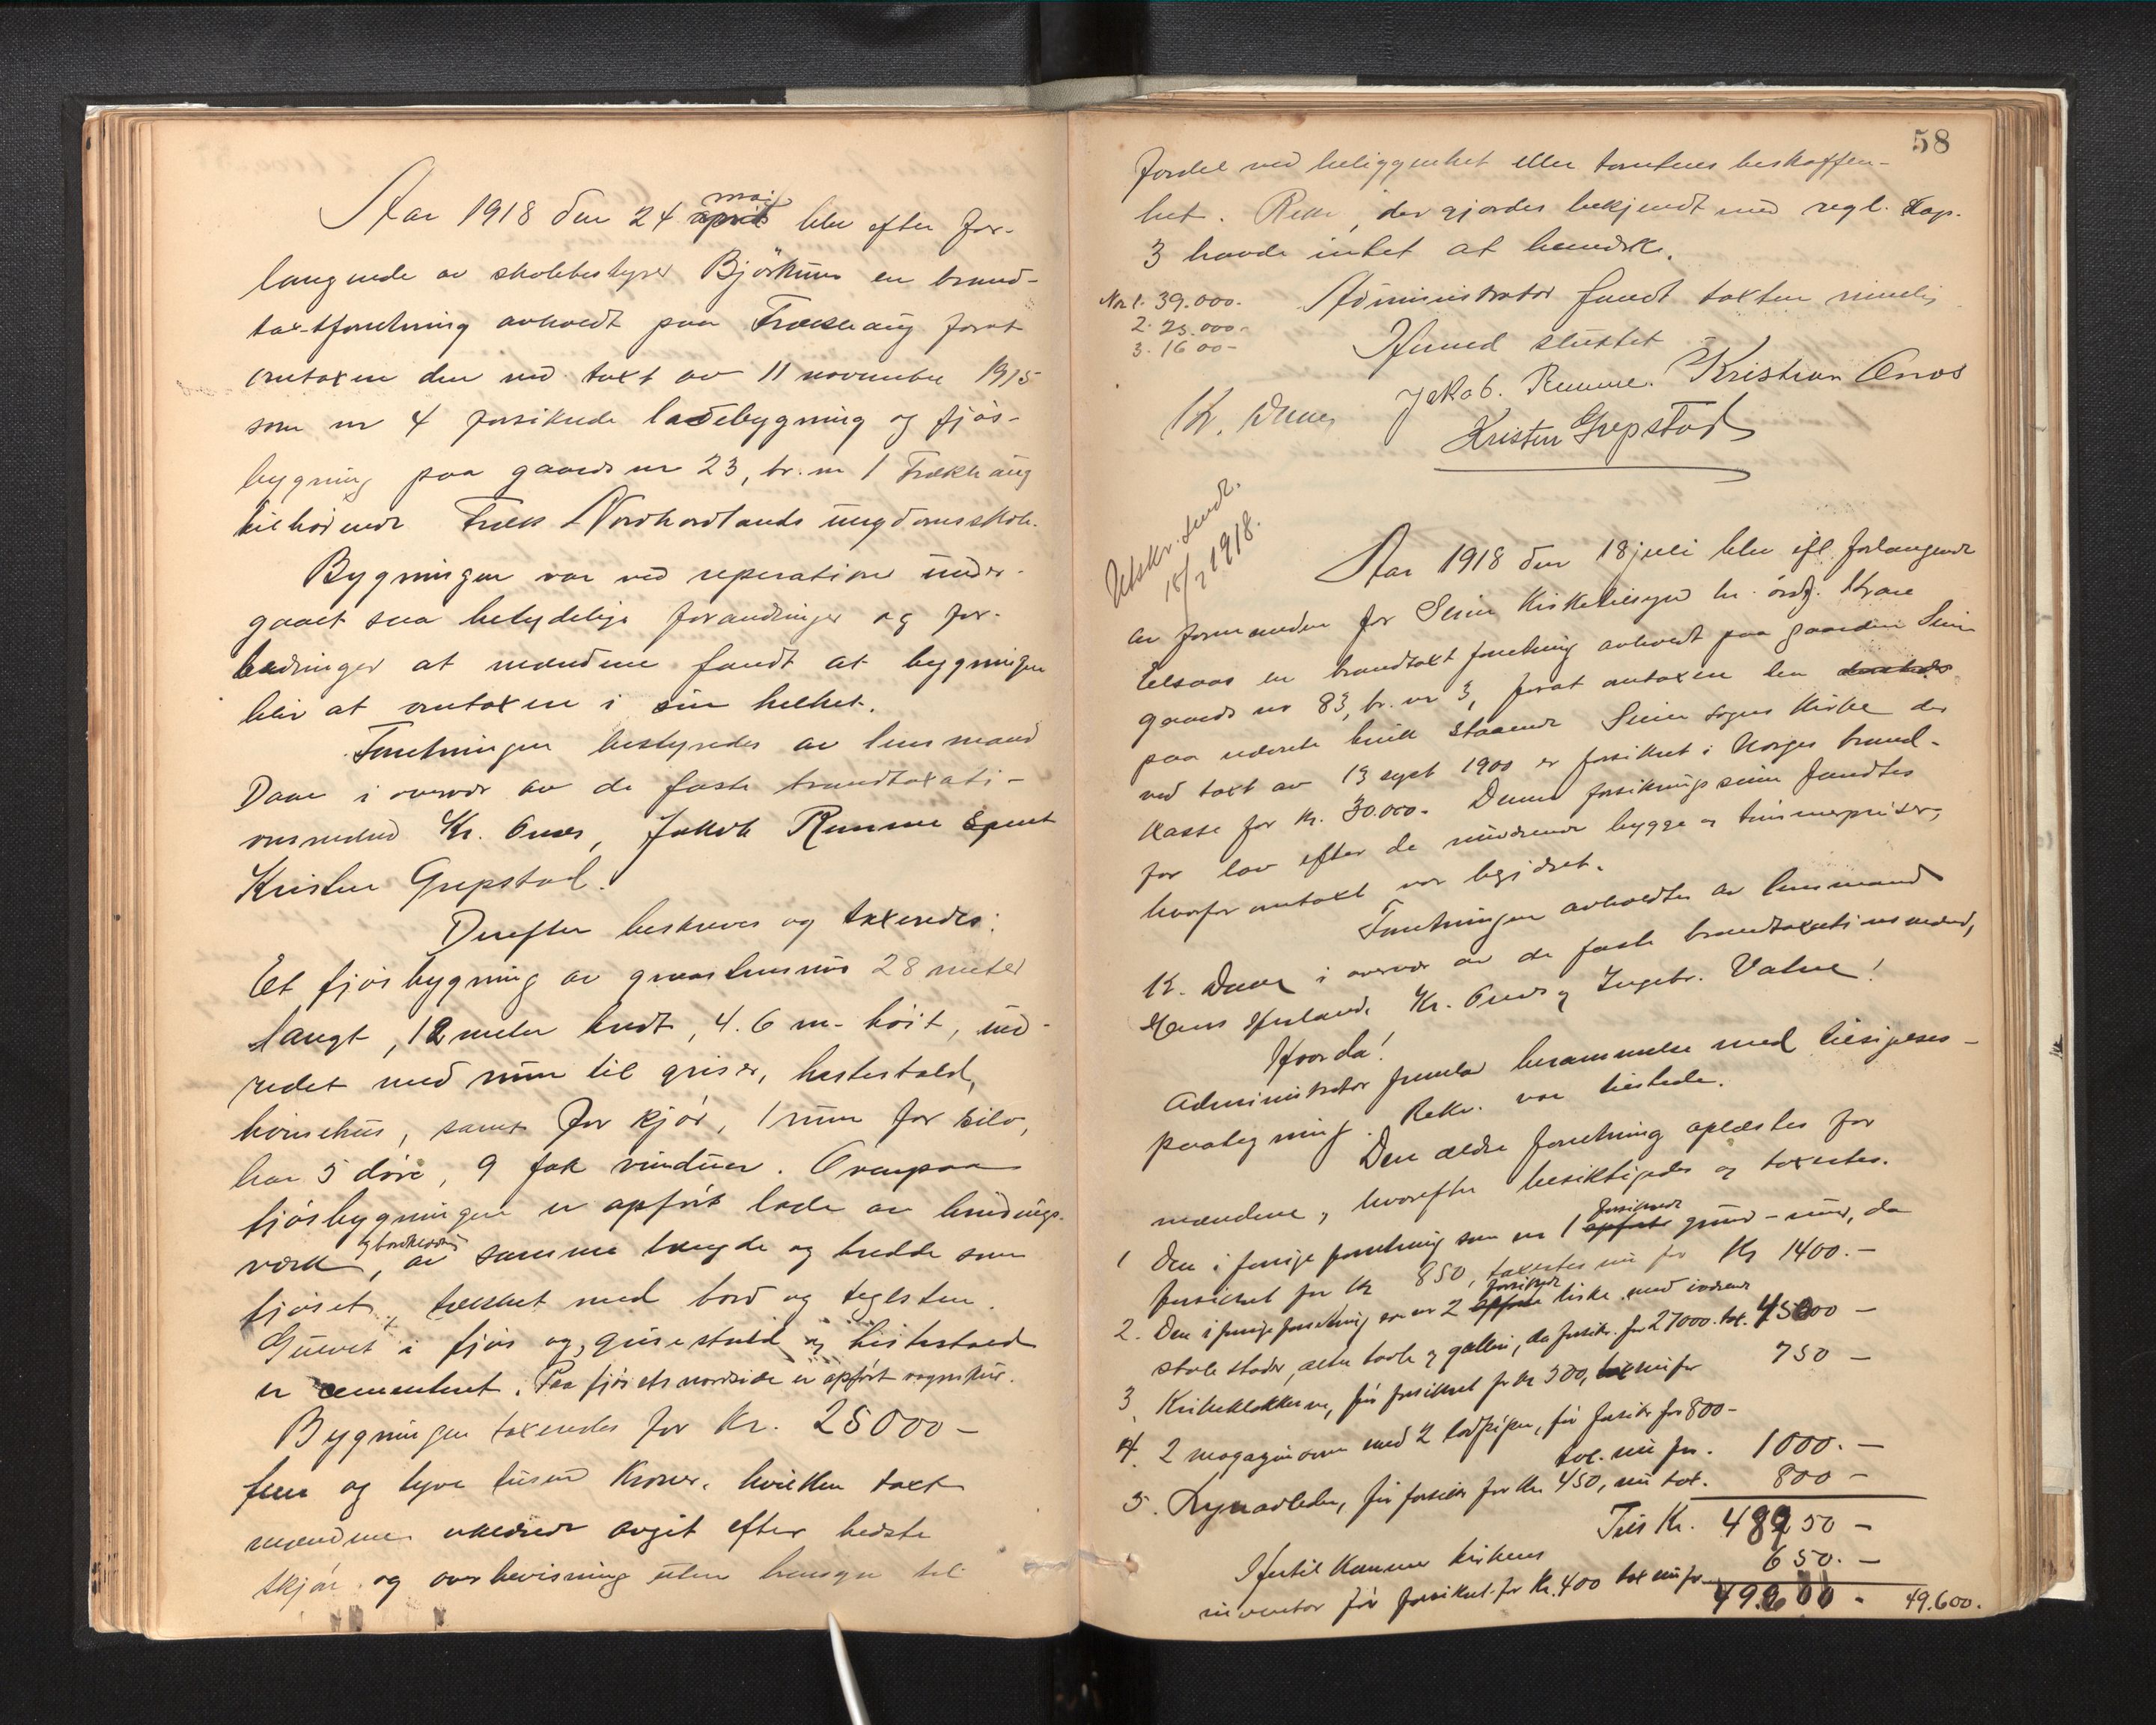 Aar 1918 den 24 mai april blev efter for-
langende av skolebestyrer Björkum en brand-
taxtforretning avholdt paa Frækhaug forat
omtaxere den ved taxt av 11 november 1915
som nr 4 forsikrede ladebygning og fjös-
bygning paa gaards nr 23, br. nr 1 Frækhaug
tilhörende Fræk Nordhordlands ungdomsskole.
Bygningen var ved reperationer under-
gaaet saa betydelige forandringer og for-
bedringer at mændene fandt at bygningen
blir at omtaxere i sin helhet.
Forretningen bestyredes av lensmand
Daae i overvær av de faste brandtaxati-
onsmænd Kr. Onæs, Jakob Remme samt
Kristen Grepstad.
Derefter beskreves og taxeredes:
Et fjösbygning av graastensmur 28 meter
langt, 12 meter bredt, 4.6 m. höit, ind-
redet med rum til griser, hestestald,
hönsehus, samt for kjör, 1 rum for silo,
har 5 döre, 9 fak vinduer. Ovenpaa
fjösbygningen er opfört lade av bindings-
verk og bordklædn, av samme længde og bredde som
fjöset, tækket med bord og teglsten.
Gulvet i fjös og grisestald og hestestald
er cementert. Paa fjösets nordside er opfört vognskur.
Bygningen taxeredes for Kr. 25000 -
fem og tyve tusen Kroner. hvilken taxt
mændene erklærede avgit efter bedste
skjön og overbevisning uten hensyn til
58
fordel ved beliggenhet eller tomtens beskaffen-
het. Rekv, der gjordes bekjendt med regl. Kap.
3 havde intet at bemerke.
Administrator fandt taxten rimelig
No 1. 39.000.
2. 25.000 -
3. 1600 -
Hermed sluttet
K. Daae Jakob. Remme. Kristian Onæs
Kristen Grepstad
Utskr. sendt.
18/7 1918.
Aar 1918 den 18 juli blev ifl. forlangende
av formanden for Seim Kirketilsyn hr. ordf. Krane
en brandtaxt forretning avholdt paa gaarden Seim
gaards nr 83, br. nr 3, forat omtaxere den
paa nævnte bruk staaende Seim sogns kirke der
ved taxt av 13 sept 1900 er forsikret i Norges brand-
kasse for kr. 30.000. Denne forsikringssum fandtes
for lav efter de nuværende bygge og timmerpriser,
hvorfor omtaxt var begjæret.
Forretningen avholdtes av lensmand
K. Daae i overvær av de faste brandtaxationsmænd,
Hans Herland, Kr. Onæs og Ingebr. Valne!
Hvorda!
Administrator fremla berammelse med tilsigelses-
paategning. Rekv. var tilstede.
Den ældre forretning oplæstes for
mændene, hvorefter besiktigedes og taxertes.
1 Den i forrige forretning som nr 1 forsikrede opförte grund-mur, da
forsikret for kr 850, taxertes nu for Kr 1400. -
2. Den i forrige forretning som nr 2 forsikrede opförte kirke med indvend
stole stader, alter tavle og galleri, da forsikr. for 27000. tax. 45000 -
3 Kirkeklokkerne, för forsikret for kr 500, tax nu for 750 -
4. 2 magazinovne med 2 rörpiper, för forsikr for 800 -
tax. nu for. 1000. -
5. Lynavleder, för forsikr for kr 450, nu tax. 800 -
Tils Kr. 48950 -
Hertil kommer kirkens
inventar för forsikret for Kr. 400 tax nu for 650. -
49.600 - 49.600.